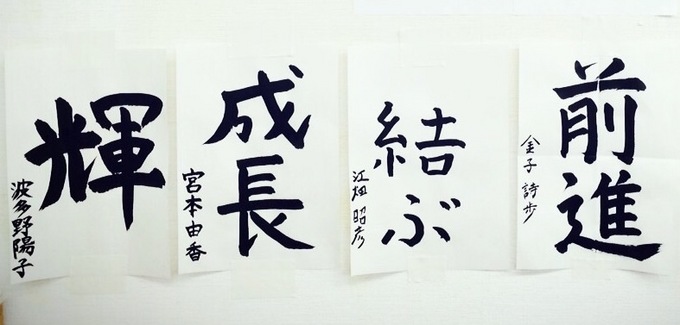 前進
金子 詩歩
結ぶ
江畑 昭彦
成長
宮本由香
輝
波多野陽子